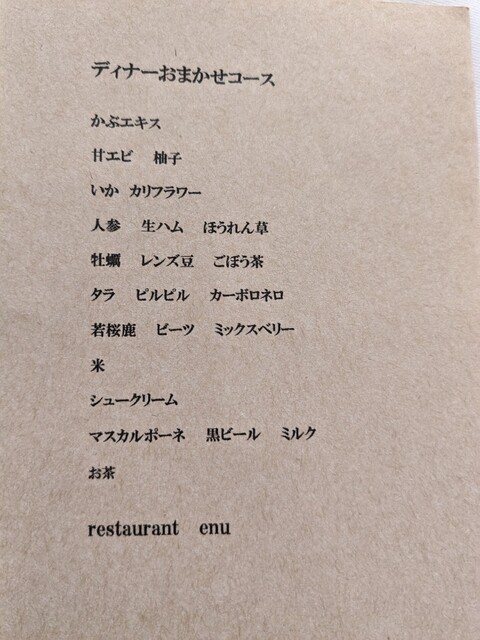 ディナーおまかせコース
かぶエキス
甘エビ 柚子
いか カリフラワー
人参 生ハム ほうれん草
牡蠣 レンズ豆 ごぼう茶
タラ ピルピル カーボロネロ
若桜鹿 ビーツ ミックスベリー
米
シュークリーム
マスカルポーネ 黒ビール ミルク
お茶
restaurant enu